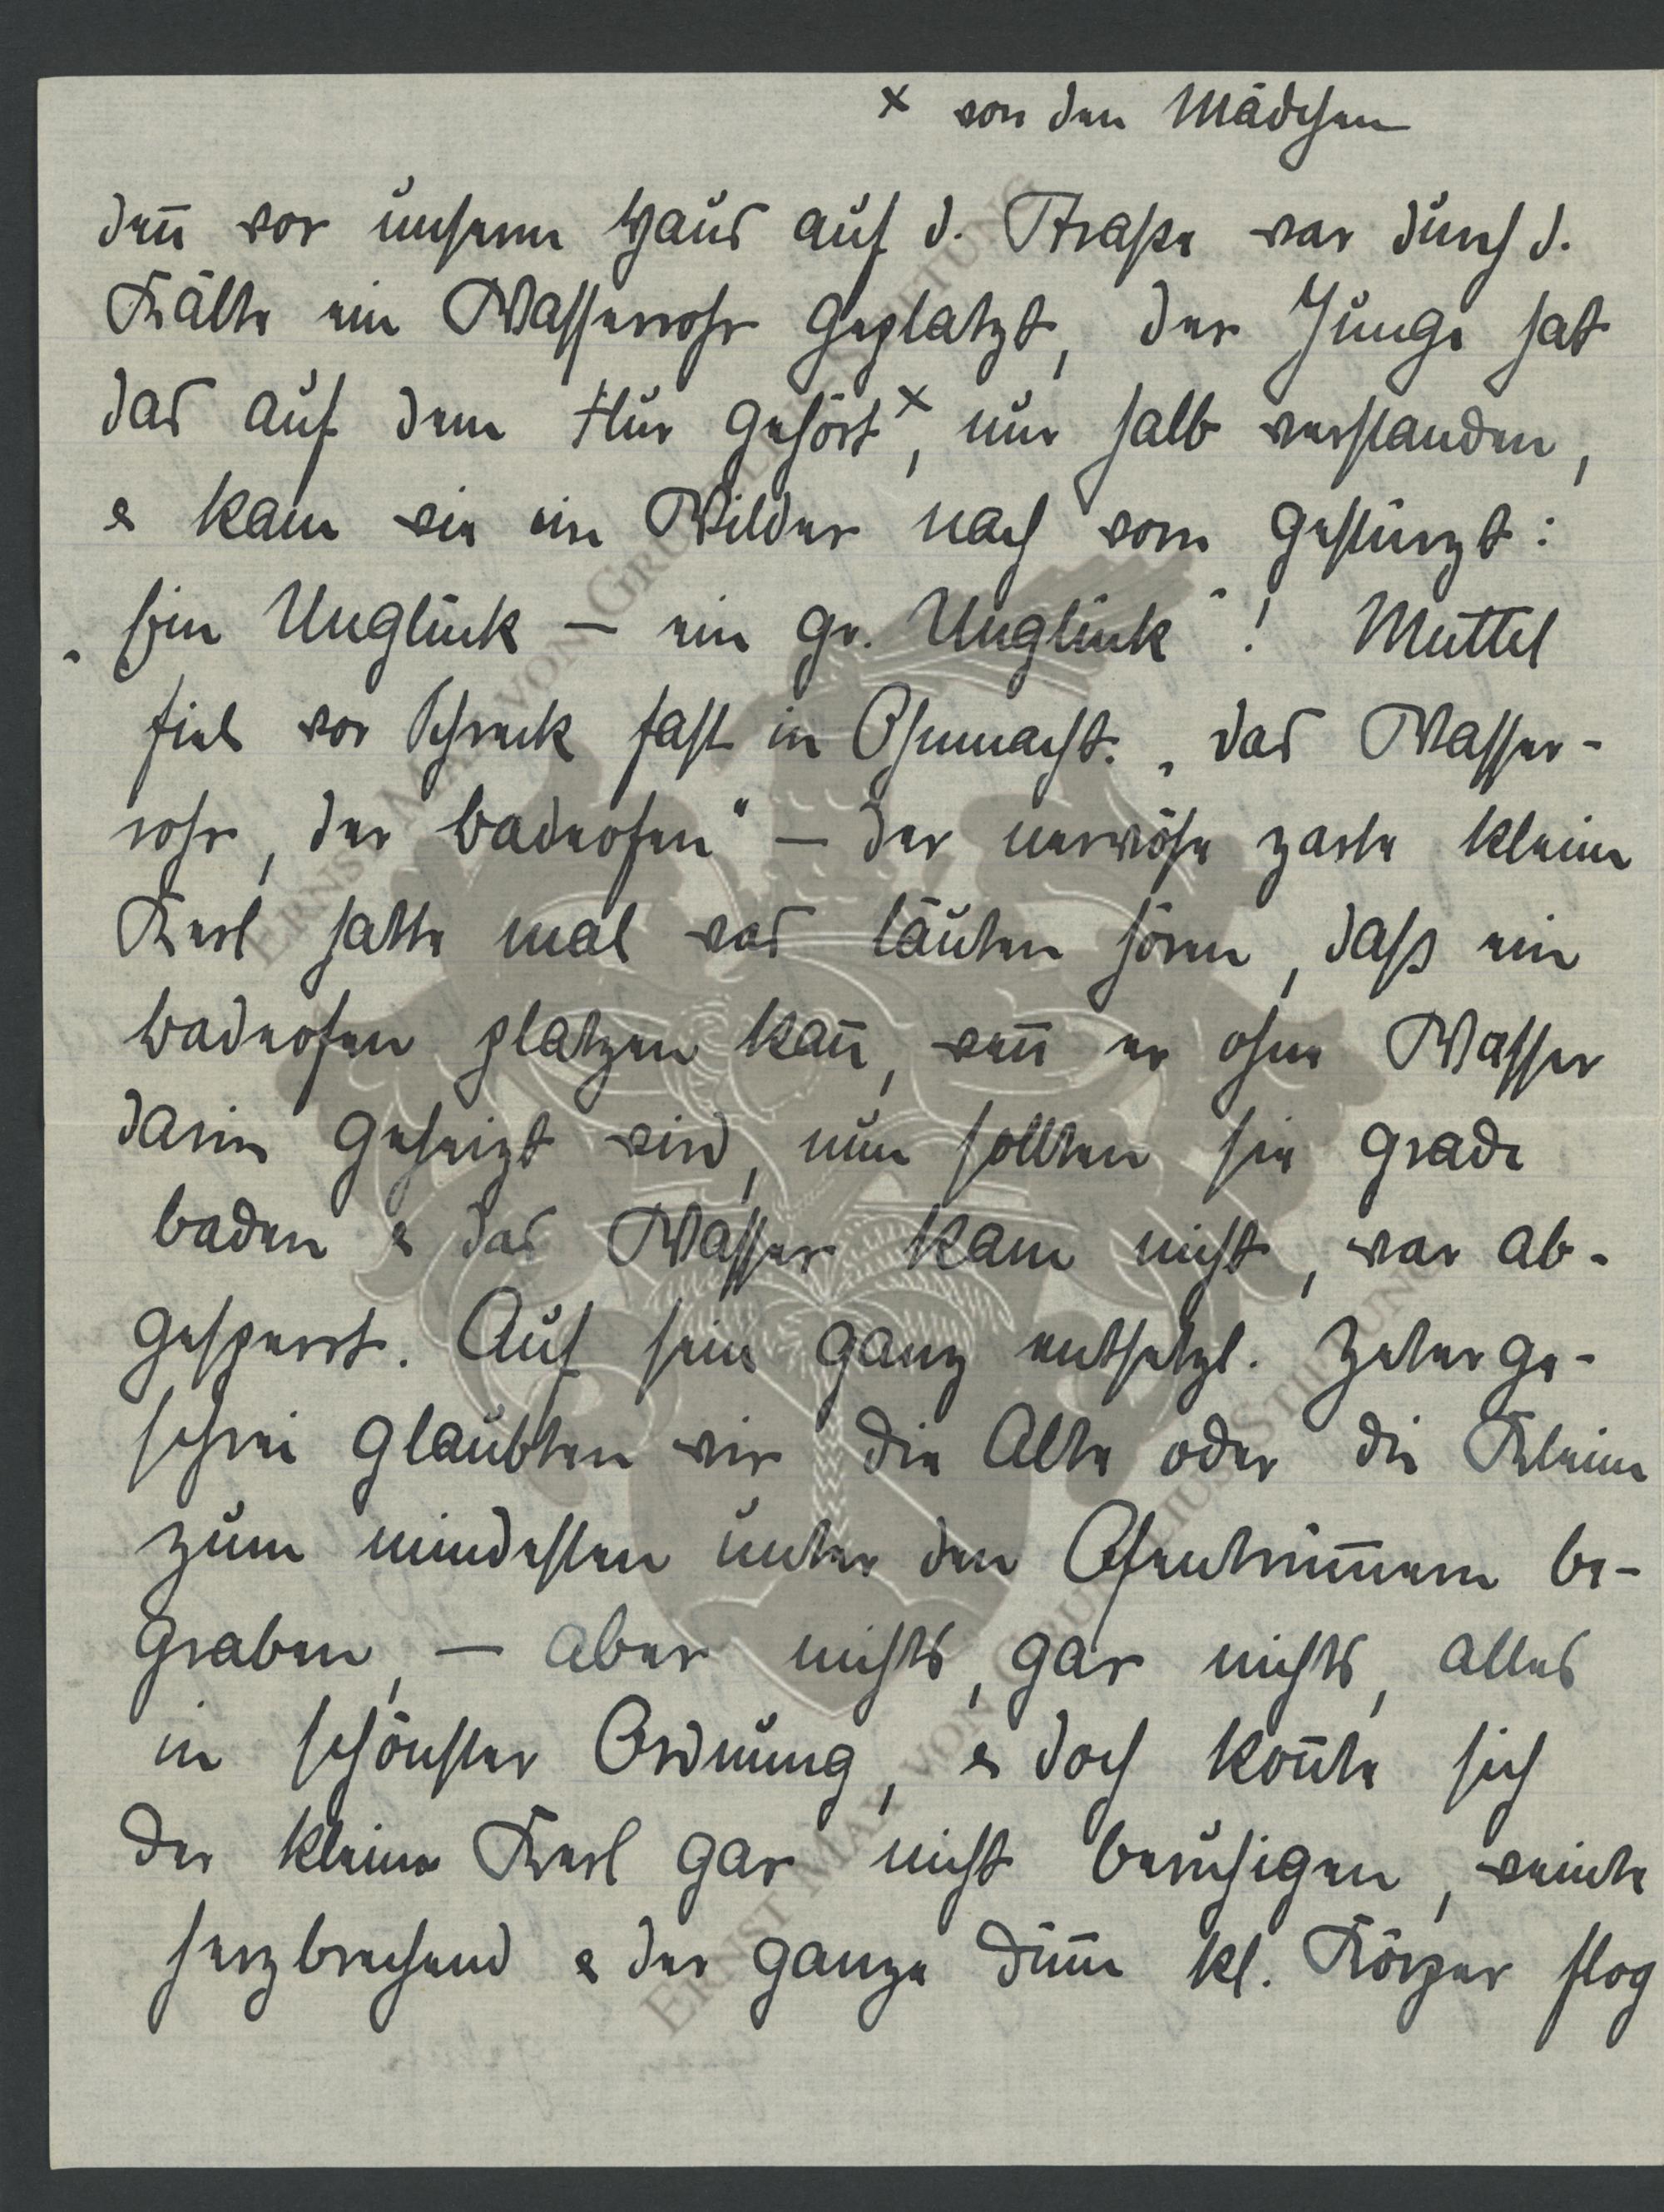 x von den Mädchen
deñ vor unserm Haus auf d. Straße war durch d.
Kälte ein Wasserrohr geplatzt, der Junge hat
das auf dem Flur gehört x, nur halb verstanden,
& kam wie ein Wilder nach vorn gestürzt:
„Ein Unglück – ein gr. Unglück“! Muttel
fiel vor Schreck fast in Ohnmacht. „das Wasser-
rohr, der Badeofen“ – der nervöse zarte kleine
Kerl hatte mal was läuten hören, daß ein
Badeofen platzen kañ, weñ er ohne Wasser
darin geheizt wird, nun sollten sie grade
baden & das Wasser kam nicht, war ab-
gesperrt. Auf sein ganz entsetzl. Zeterge-
schrei glaubten wir die Alte oder die Kleine
zum mindesten unter den Ofentrüm̄ern be-
graben, – aber nichts, gar nichts, alles
in schönster Ordnung, & doch koñte sich
der kleine Kerl gar nicht beruhigen, weinte
herzbrechend & der ganze düñe kl. Körper flog
ERNST MAX VON GRUNELIUS-STIFTUNG
ERNST MAX VON GRUNELIUS-STIFTUNG